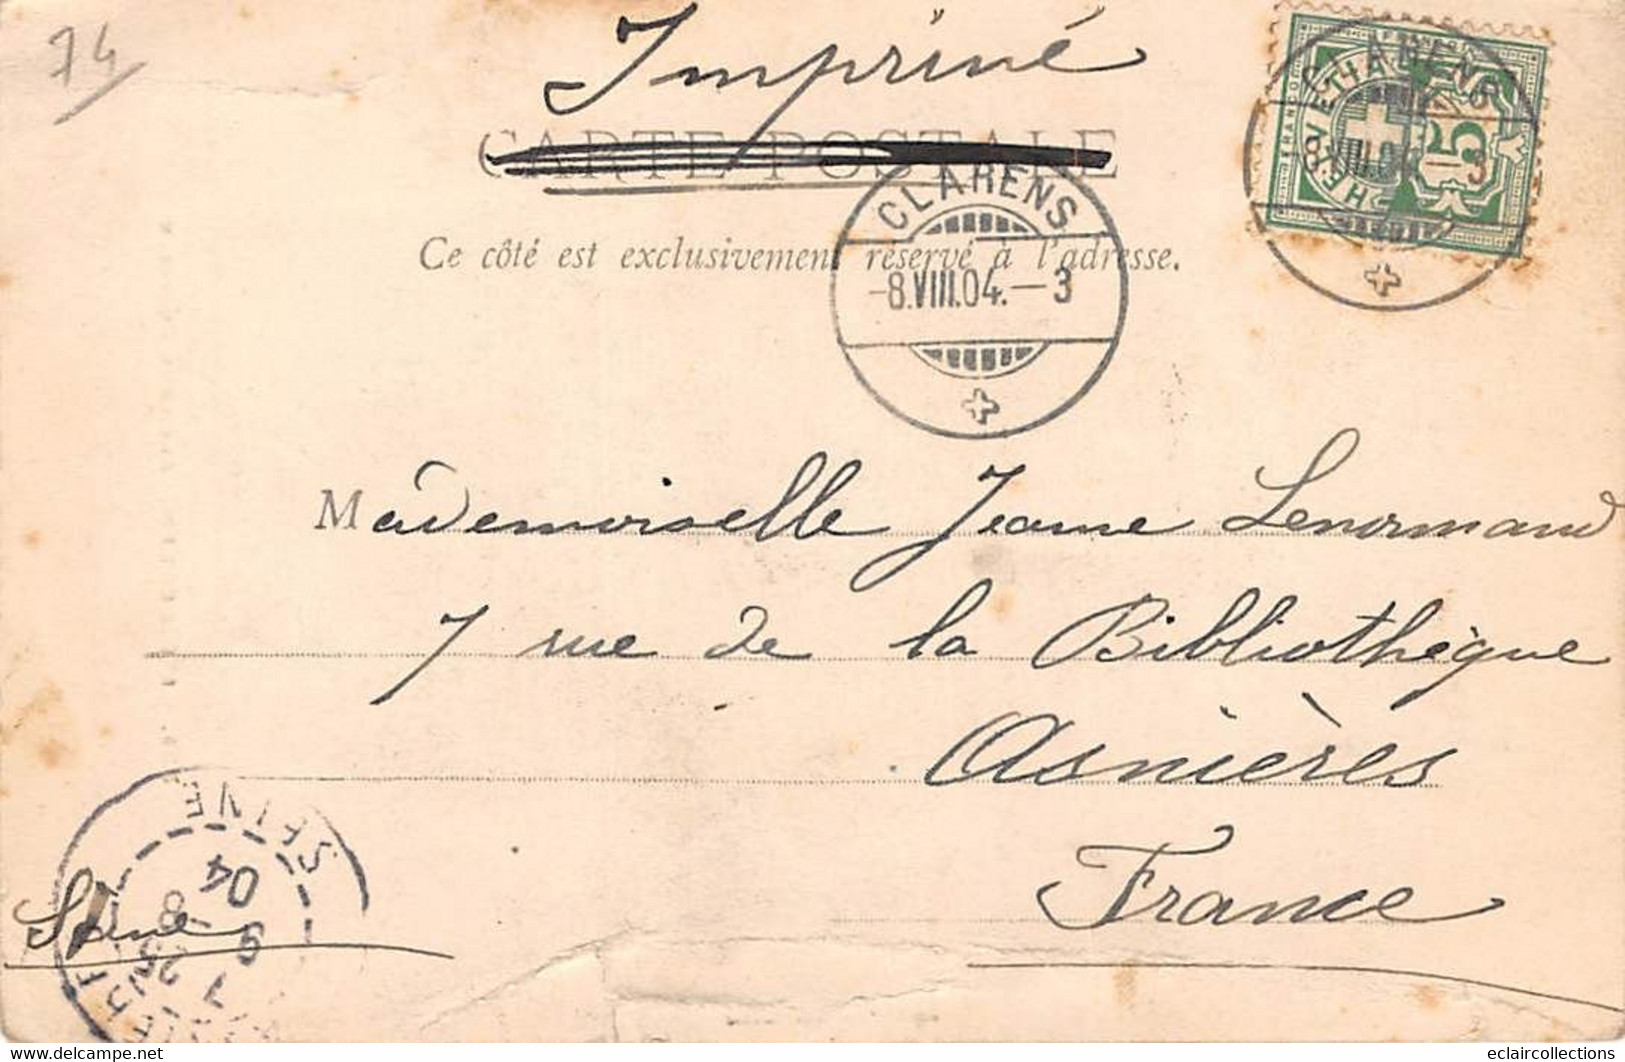 74
Imprimé
CARTE POSTALE
Ce côté est exclusivement réservé à l'adresse.
CLARENS
-8.VIII.04.-3
CLARENS
VIII.04.-3
FRANCO
HELVETIA
5
Mademoiselle Jeanne Lenormand
7 rue de la Bibliothèque
Asnières
France
Seine
SEINE
7 25
9 -8
04
delcampe.net
eclaircollections